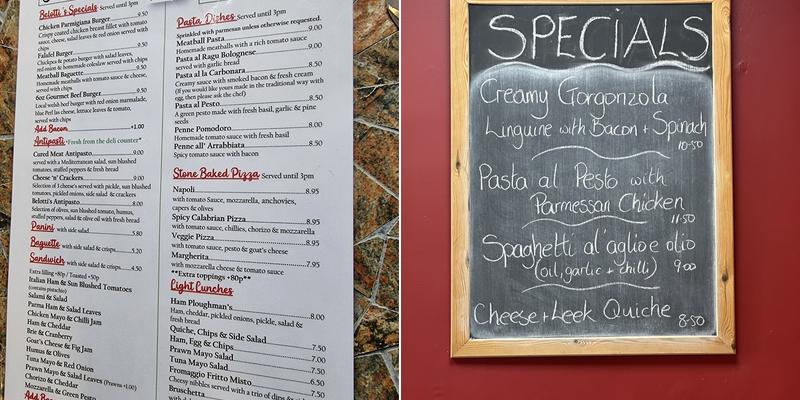 Belotti's Specials Served until 3pm
Chicken Parmigiana Burger 9.50
Crispy coated chicken breast fillet with tomato
sauce, cheese, salad leaves & red onion served with
chips
Falafel Burger 9.50
Chickpea & potato burger with salad leaves,
red onion & homemade coleslaw served with chips
Meatball Baguette 9.50
Homemade meatballs with tomato sauce & cheese,
served with chips
6oz Gourmet Beef Burger 9.50
Local welsh beef burger with red onion marmalade,
blue Perl las cheese, lettuce leaves & tomato,
served with chips
Add Bacon +1.00
Antipasti *Fresh from the deli counter*
Cured Meat Antipasto 9.00
served with a Mediterranean salad, sun blushed
tomatoes, stuffed peppers & fresh bread
Cheese 'n' Crackers 9.00
Selection of 3 cheese's served with pickle, sun blushed
tomatoes, pickled onions, side salad & crackers
Belotti's Antipasto 8.00
Selection of olives, sun blushed tomato, humus,
stuffed peppers, salad & olive oil with fresh bread
Panini with side salad 5.80
Baguette with side salad & crisps 5.20
Sandwich with side salad & crisps 4.50
Extra filling +80p / Toasted +50p
Italian Ham & Sun Blushed Tomatoes
(contains pistachio)
Salami & Salad
Parma Ham & Salad Leaves
Chicken Mayo & Chilli Jam
Ham & Cheddar
Brie & Cranberry
Goat's Cheese & Fig Jam
Humus & Olives
Tuna Mayo & Red Onion
Prawn Mayo & Salad Leaves (Prawns +1.00)
Chorizo & Cheddar
Mozzarella & Green Pesto
Pasta Dishes Served until 3pm
Sprinkled with parmesan unless otherwise requested.
Meatball Pasta 9.00
Homemade meatballs with a rich tomato sauce
Pasta al Ragu Bolognese 9.00
served with garlic bread
Pasta al la Carbonara 8.50
Creamy sauce with smoked bacon & fresh cream
(If you would like yours made in the traditional way with
egg, then please ask the chef)
Pasta al Pesto 8.50
A green pesto made with fresh basil, garlic & pine
seeds
Penne Pomodoro 8.00
Homemade tomato sauce with fresh basil
Penne all' Arrabbiata 8.50
Spicy tomato sauce with bacon
Stone Baked Pizza Served until 3pm
Napoli 8.95
with Tomato Sauce, mozzarella, anchovies,
capers & olives
Spicy Calabrian Pizza 8.95
with tomato sauce, chillies, chorizo & mozzarella
Veggie Pizza 8.95
with tomato sauce, pesto & goat's cheese
Margherita 7.95
with mozzarella cheese & tomato sauce
**Extra toppings +80p**
Light Lunches
Ham Ploughman's 8.00
Ham, cheddar, pickled onions, pickle, salad &
fresh bread
Quiche, Chips & Side Salad 7.50
Ham, Egg & Chips 7.00
Prawn Mayo Salad 7.50
Tuna Mayo Salad 7.00
Fromaggio Fritto Misto 6.50
Cheesy nibbles served with a trio of dips & 
Bruschetta 7.50
SPECIALS
Creamy Gorgonzola
Linguine with Bacon + Spinach
10-50
Pasta al Pesto with
Parmessan Chicken
11-50
Spaghetti al'aglio e olio
(oil, garlic + chilli) 9-00
Cheese + Leek Quiche 8-50